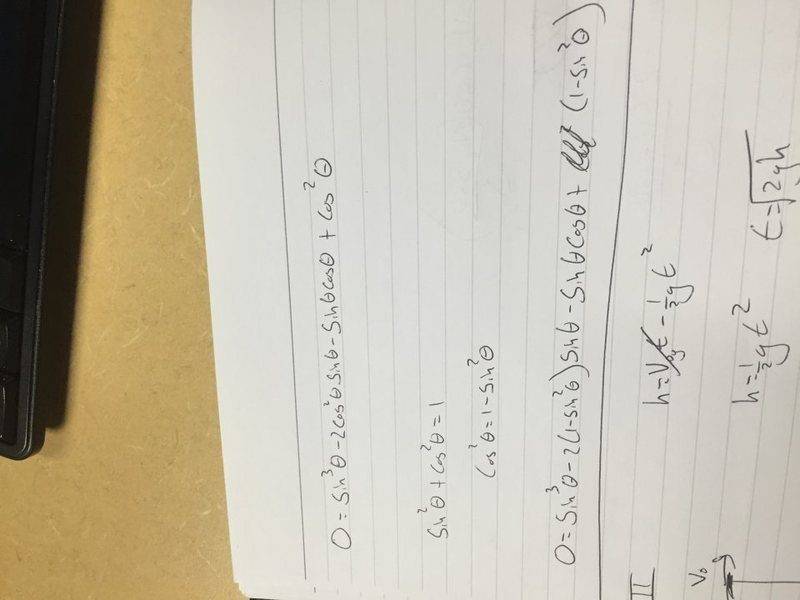 0 = sin³θ - 2cos²θ sinθ - sinθcosθ + cos²θ
sin²θ + cos²θ = 1
cos²θ = 1 - sin²θ
0 = sin³θ - 2(1-sin²θ)sinθ - sinθcosθ + (1-sin²θ)
II
h = V₀yt - ½gt²
V₀
h = ½gt² t = √2gh